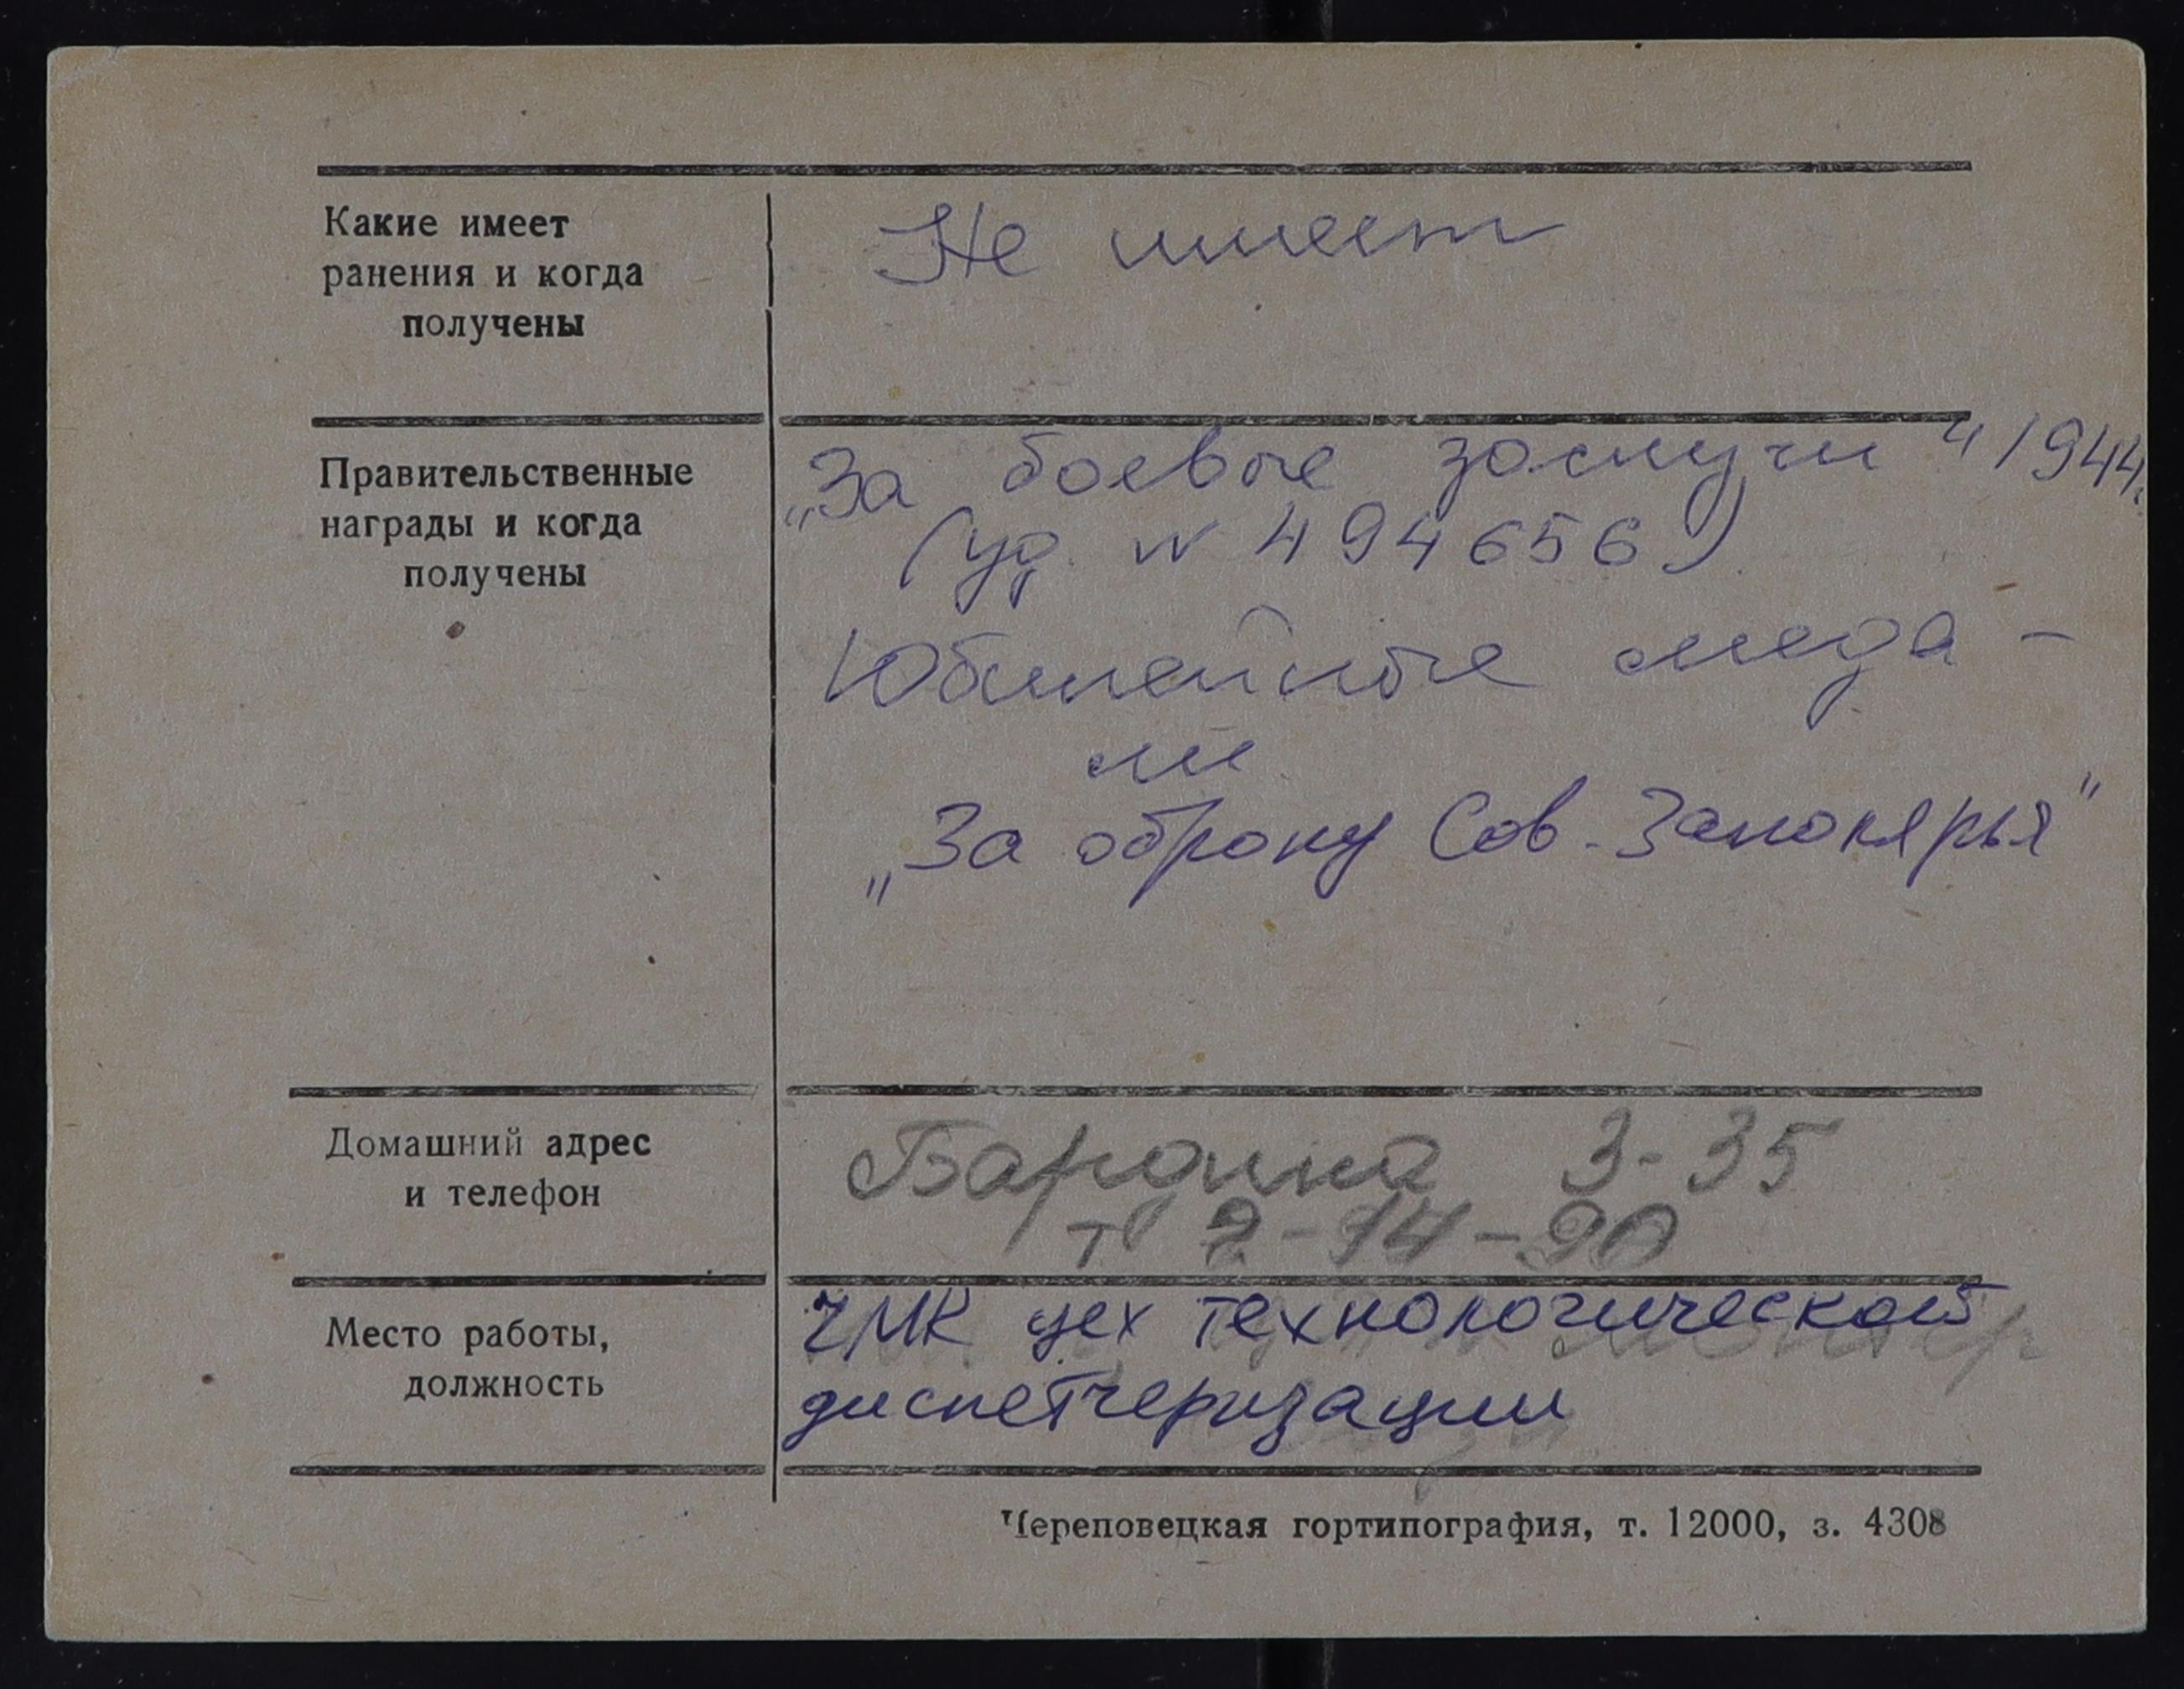 Какие имеет
ранения и когда
получены
Не имеет
Правительственные
награды и когда
получены
„За боевые заслуги" 1944.
(уд. № 494656)
Юбилейные меда-
ли
„За оброну Сов. Заполярья"
Домашний адрес
и телефон
Бардина 3-35
т 2-14-90
Место работы,
должность
ЧМК цех технологической
диспетчеризации
Череповецкая гортипография, т. 12000, з. 4308